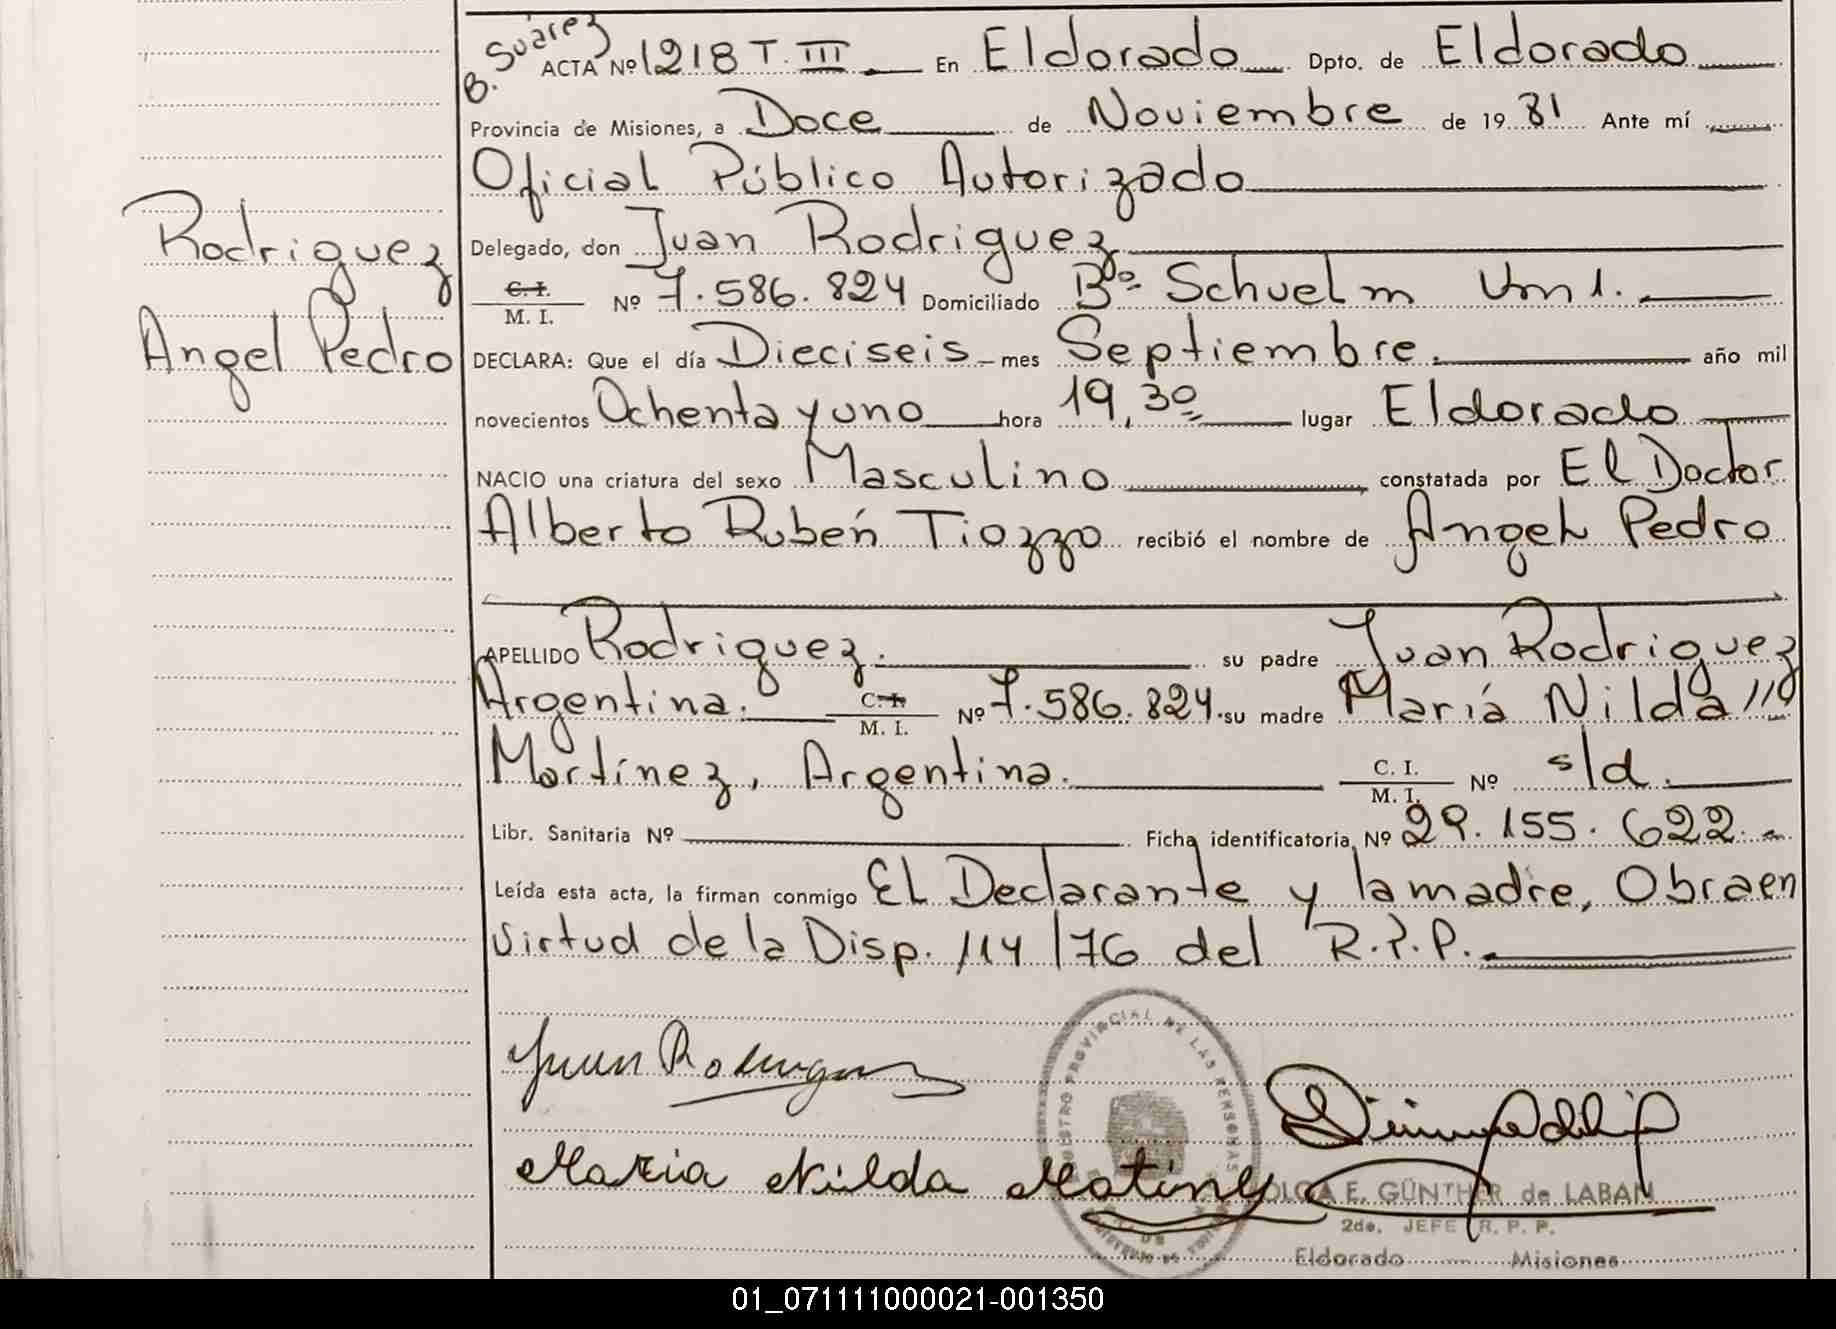 B. Suárez
ACTA Nº 1218 T. III En Eldorado Dpto. de Eldorado
Provincia de Misiones, a Doce de Noviembre de 19 81 Ante mí
Oficial Público Autorizado
Rodriguez
Angel Pedro
Delegado, don Juan Rodriguez
C. I. M. I. Nº 7.586.824 Domiciliado Bº Schuelm Km 1.
DECLARA: Que el día Dieciseis mes Septiembre. año mil
novecientos Ochenta y uno hora 19,30 lugar Eldorado
NACIO una criatura del sexo Masculino constatada por El Doctor
Alberto Rubén Tiozzo recibió el nombre de Angel Pedro
APELLIDO Rodriguez. su padre Juan Rodriguez
Argentina. C. I. M. I. Nº 7.586.824. su madre María Nilda ///
Martínez, Argentina. C. I. M. I. Nº s/d.
Libr. Sanitaria Nº Ficha identificatoria Nº 29.155.622.
Leída esta acta, la firman conmigo El Declarante y la madre, Obra en
virtud de la Disp. 114/76 del R.P.P.
Juan Rodriguez
REGISTRO PROVINCIAL DE LAS PERSONAS
Maria Nilda Matinz
OLGA E. GÜNTHER de LABAN
2do. JEFE R. P. P.
Eldorado Misiones
01_071111000021-001350